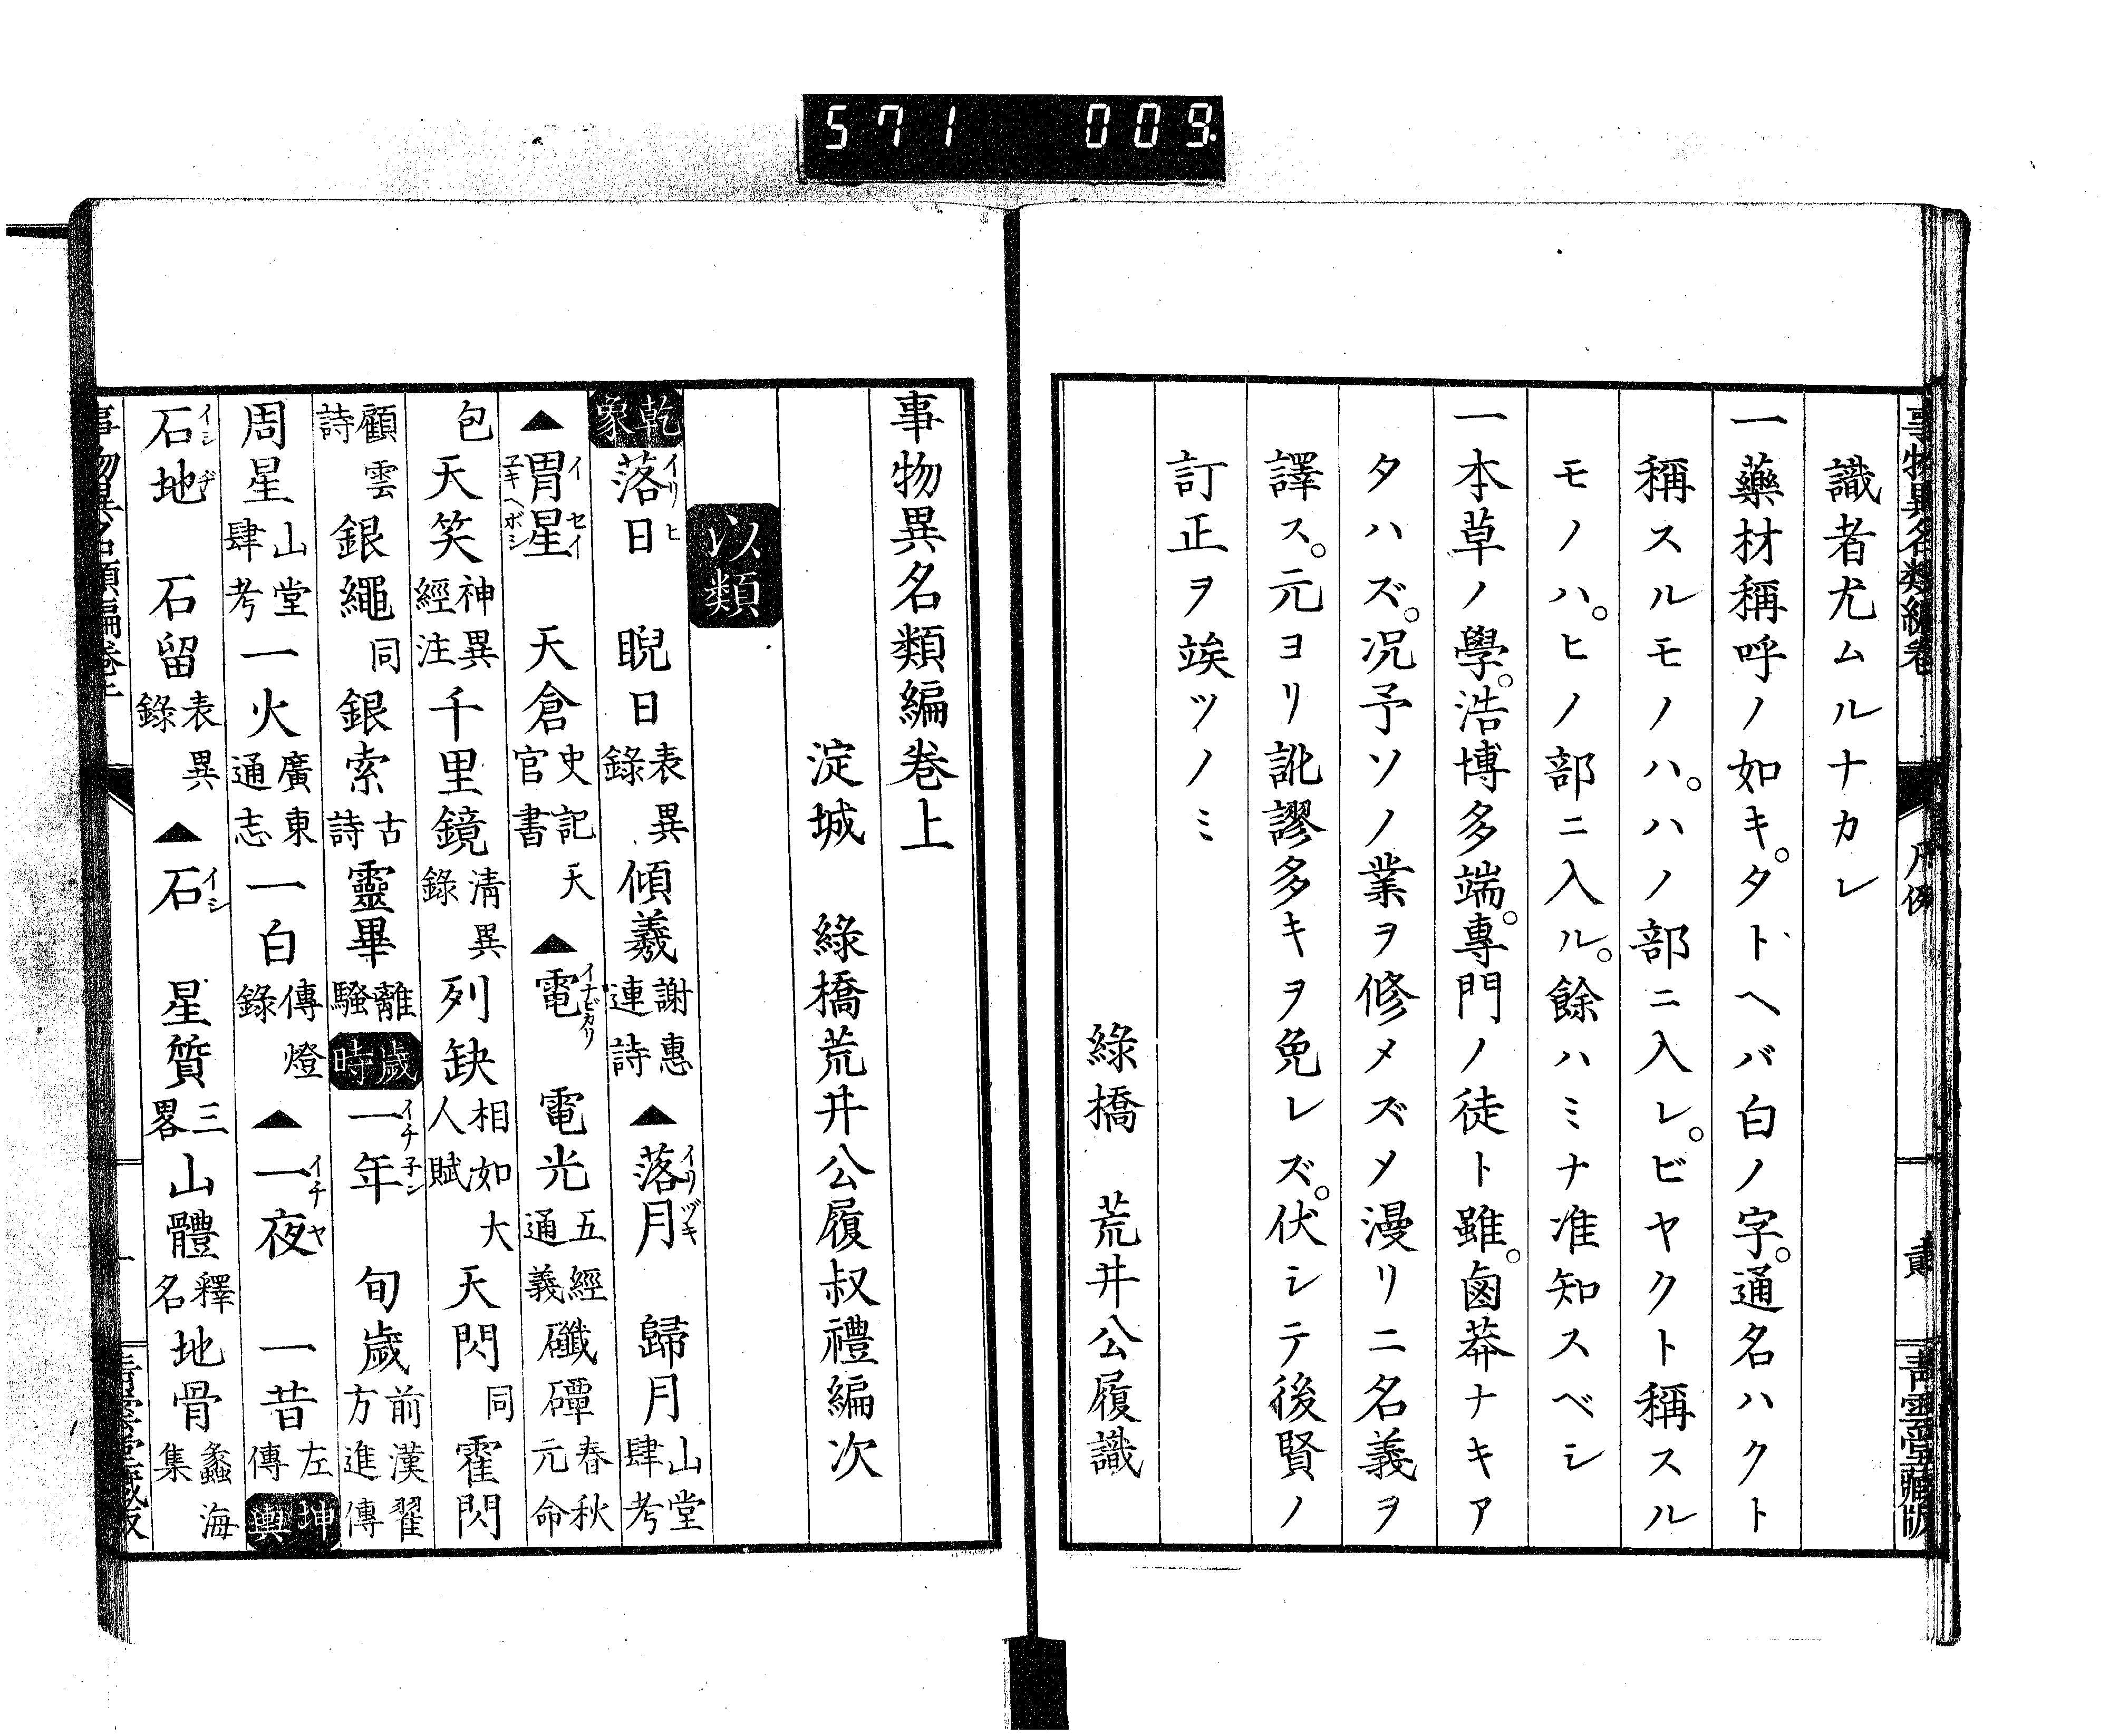 571 009.
識者尤ムルナカレ
一藥材稱呼ノ如キ。タトヘバ白ノ字。通名ハクト
稱スルモノハ。ハノ部ニ入レ。ビヤクト稱スル
モノハ。ヒノ部ニ入ル。餘ハミナ准知スベシ
一本草ノ學。浩博多端。專門ノ徒ト雖。鹵莽ナキア
タハズ。況予ソノ業ヲ修メズメ漫リニ名義ヲ
譯ス。元ヨリ訛謬多キヲ免レズ。伏シテ後賢ノ
訂正ヲ竢ツノミ
綠橋 荒井公履識
事物異名類編卷上
淀城 綠橋荒井公履叔禮編次
以類
乾象 落日イリヒ 睨日表異錄 傾羲謝惠連詩 ▲落月イリヅキ 歸月山堂肆考
▲胃星イセイ ヱキヘボシ 天倉史記天官書 ▲電イナビカリ 電光五經通義 礮磹春秋元命
包 天笑神異經注 千里鏡清異錄 列缺相如大人賦 天閃同 霍閃
顧雲詩 銀繩同 銀索古詩 靈畢離騷 歲時 一年イチ子ン 旬歲前漢翟方進傳
周星山堂肆考 一火廣東通志 一白傳燈錄 ▲一夜イチヤ 一昔左傳 坤輿
石地イシヂ 石留表異錄 ▲石イシ 星質三畧 山體釋名 地骨蠡海集